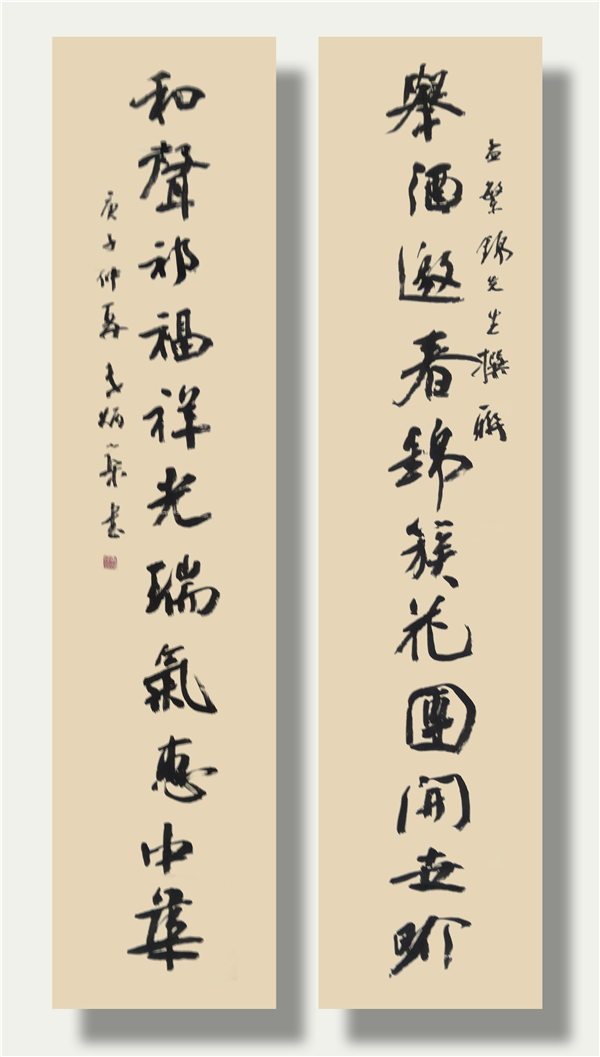 舉酒邀春錦簇花團開世界
孟繁錦先生撰聯
和聲祁福祥光瑞氣惠中華
庚子仲夏李炳築書